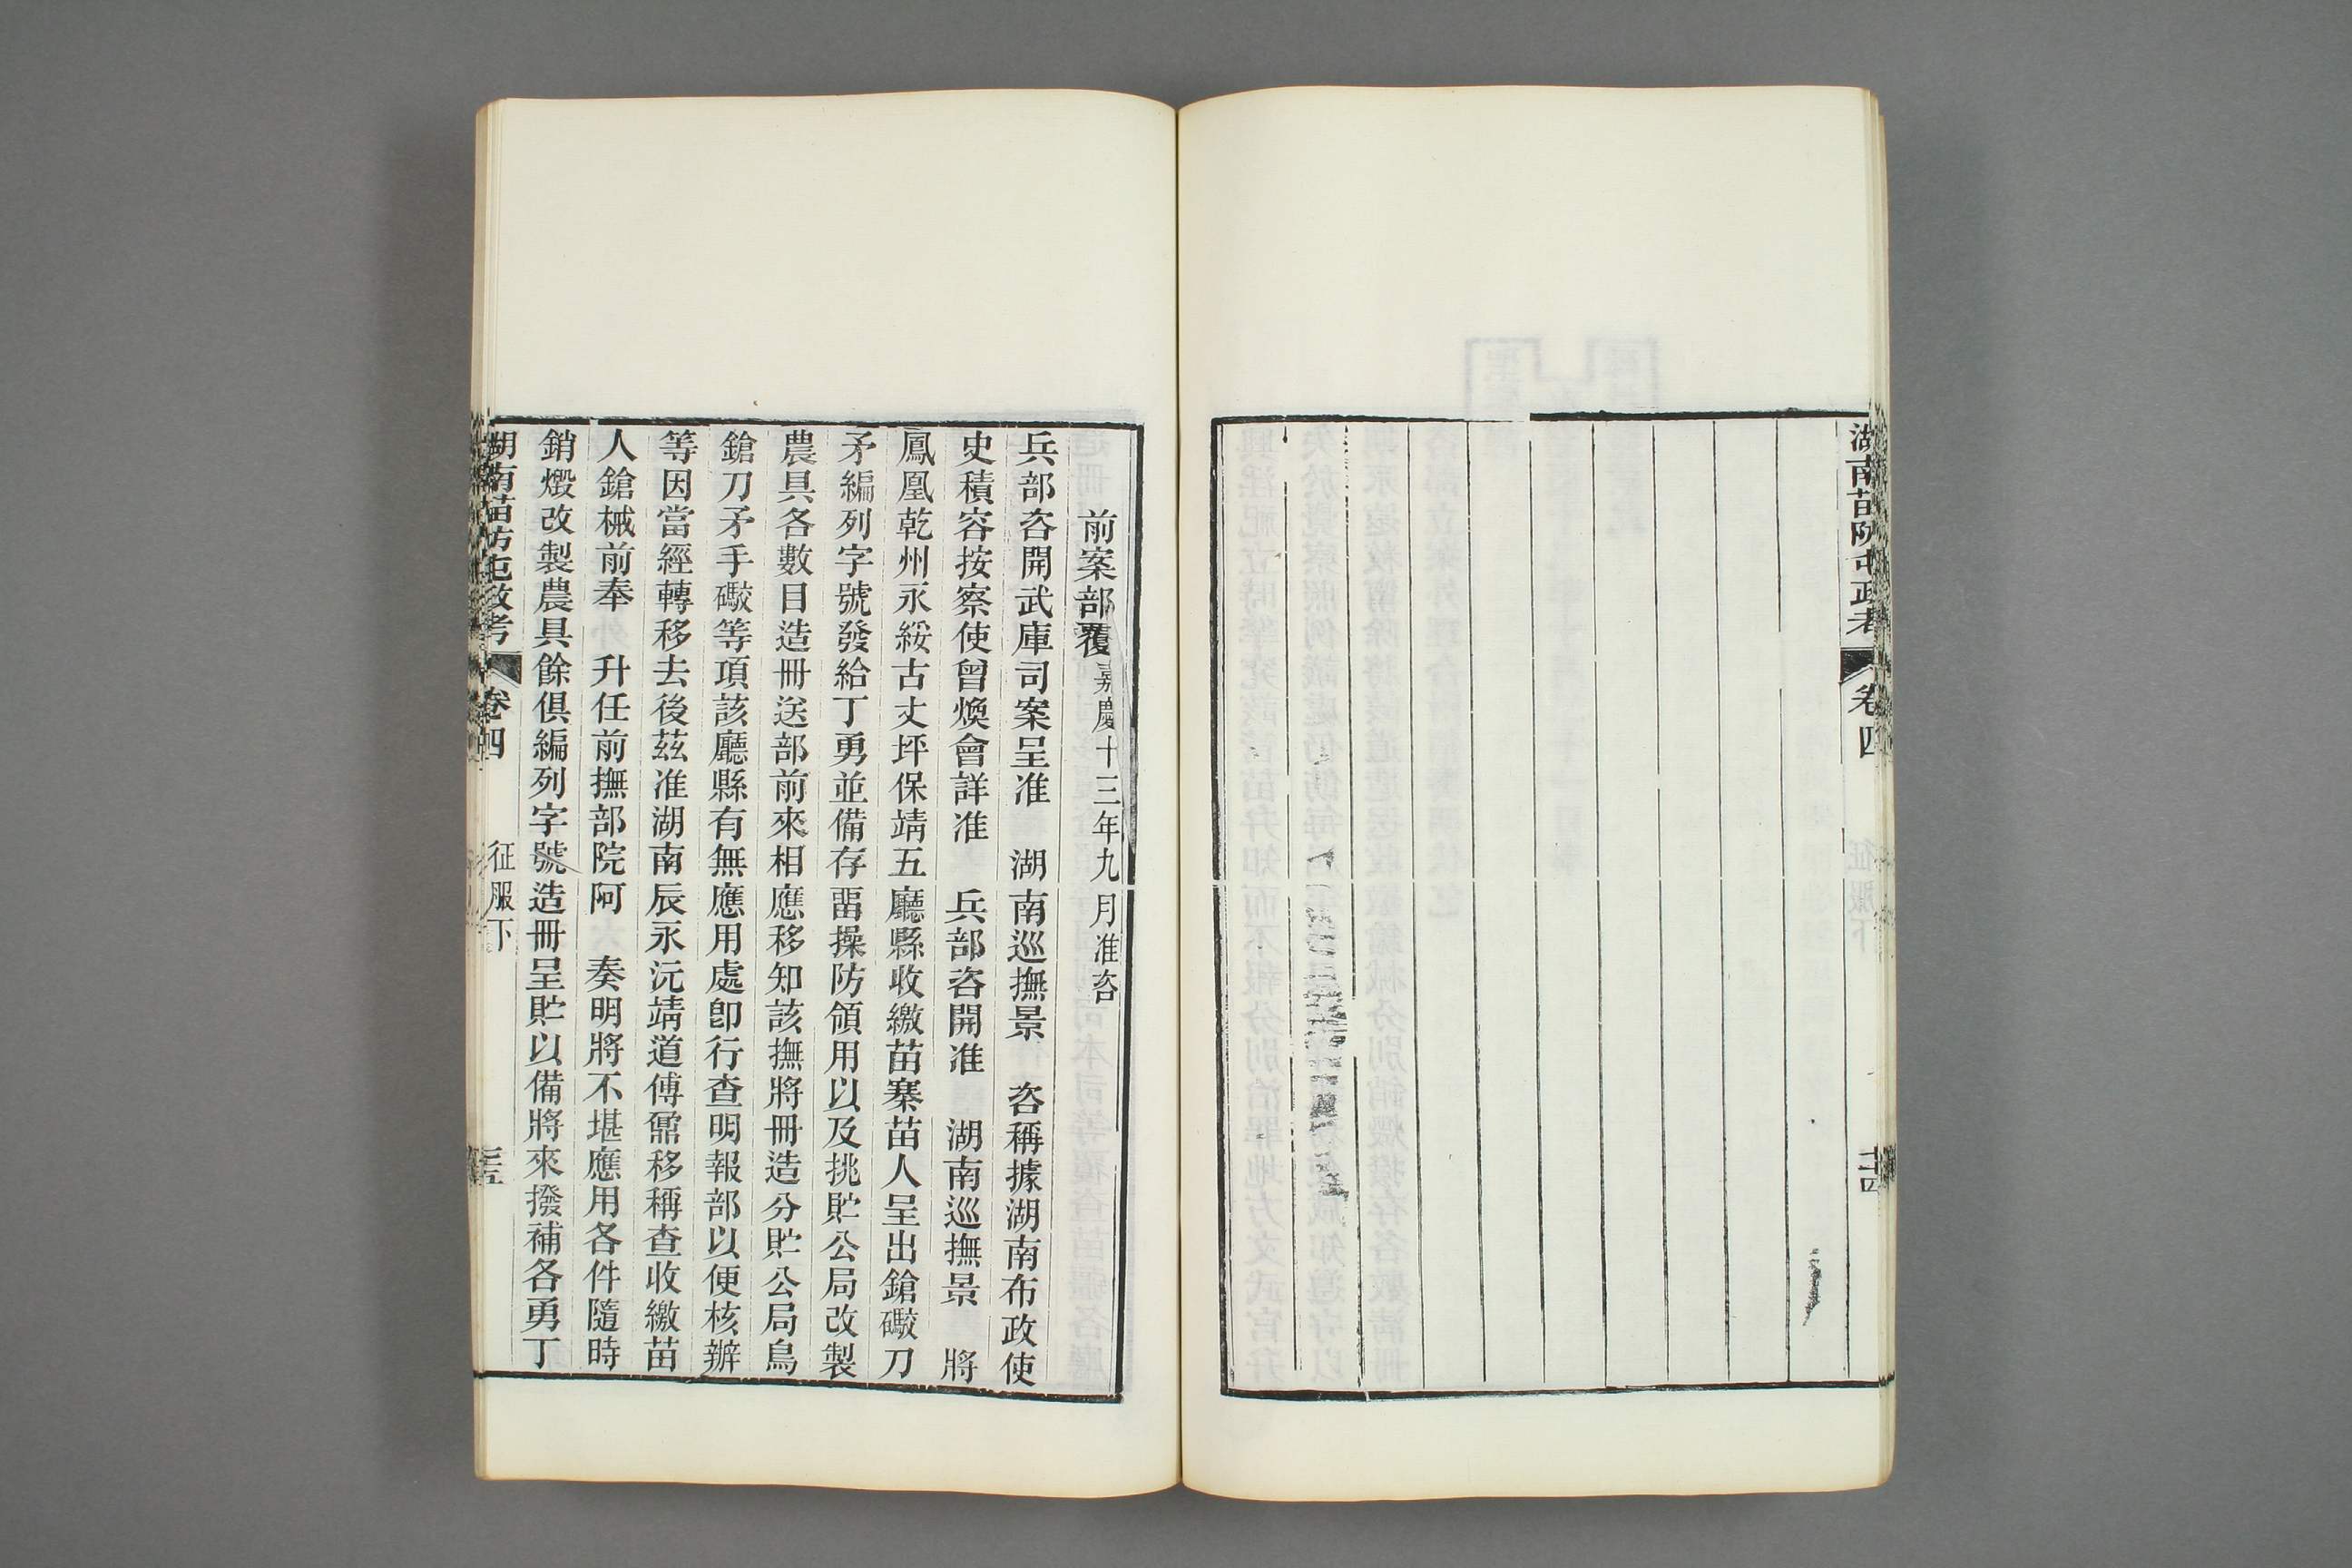 湖南苗防屯政考　卷四
前案部覆嘉慶十三年九月准咨
兵部咨開武庫司案呈准　湖南巡撫景　咨稱據湖南布政使
史積容按察使曾煥會詳准　兵部咨開准　湖南巡撫景　將
鳳凰乾州永綏古丈坪保靖五廳縣收繳苗寨苗人呈出鎗礮刀
矛編列字號發給丁勇並備存畱操防領用以及挑貯公局改製
農具各數目造冊送部前來相應移知該撫將冊造分貯公局鳥
鎗刀矛手礮等項該廳縣有無應用處卽行查明報部以便核辦
等因當經轉移去後茲准湖南辰永沅靖道傅鼐移稱查收繳苗
人鎗械前奉　升任前撫部院阿　奏明將不堪應用各件隨時
銷燬改製農具餘俱編列字號造冊呈貯以備將來撥補各勇丁
湖南苗防屯政考　卷四　征服下